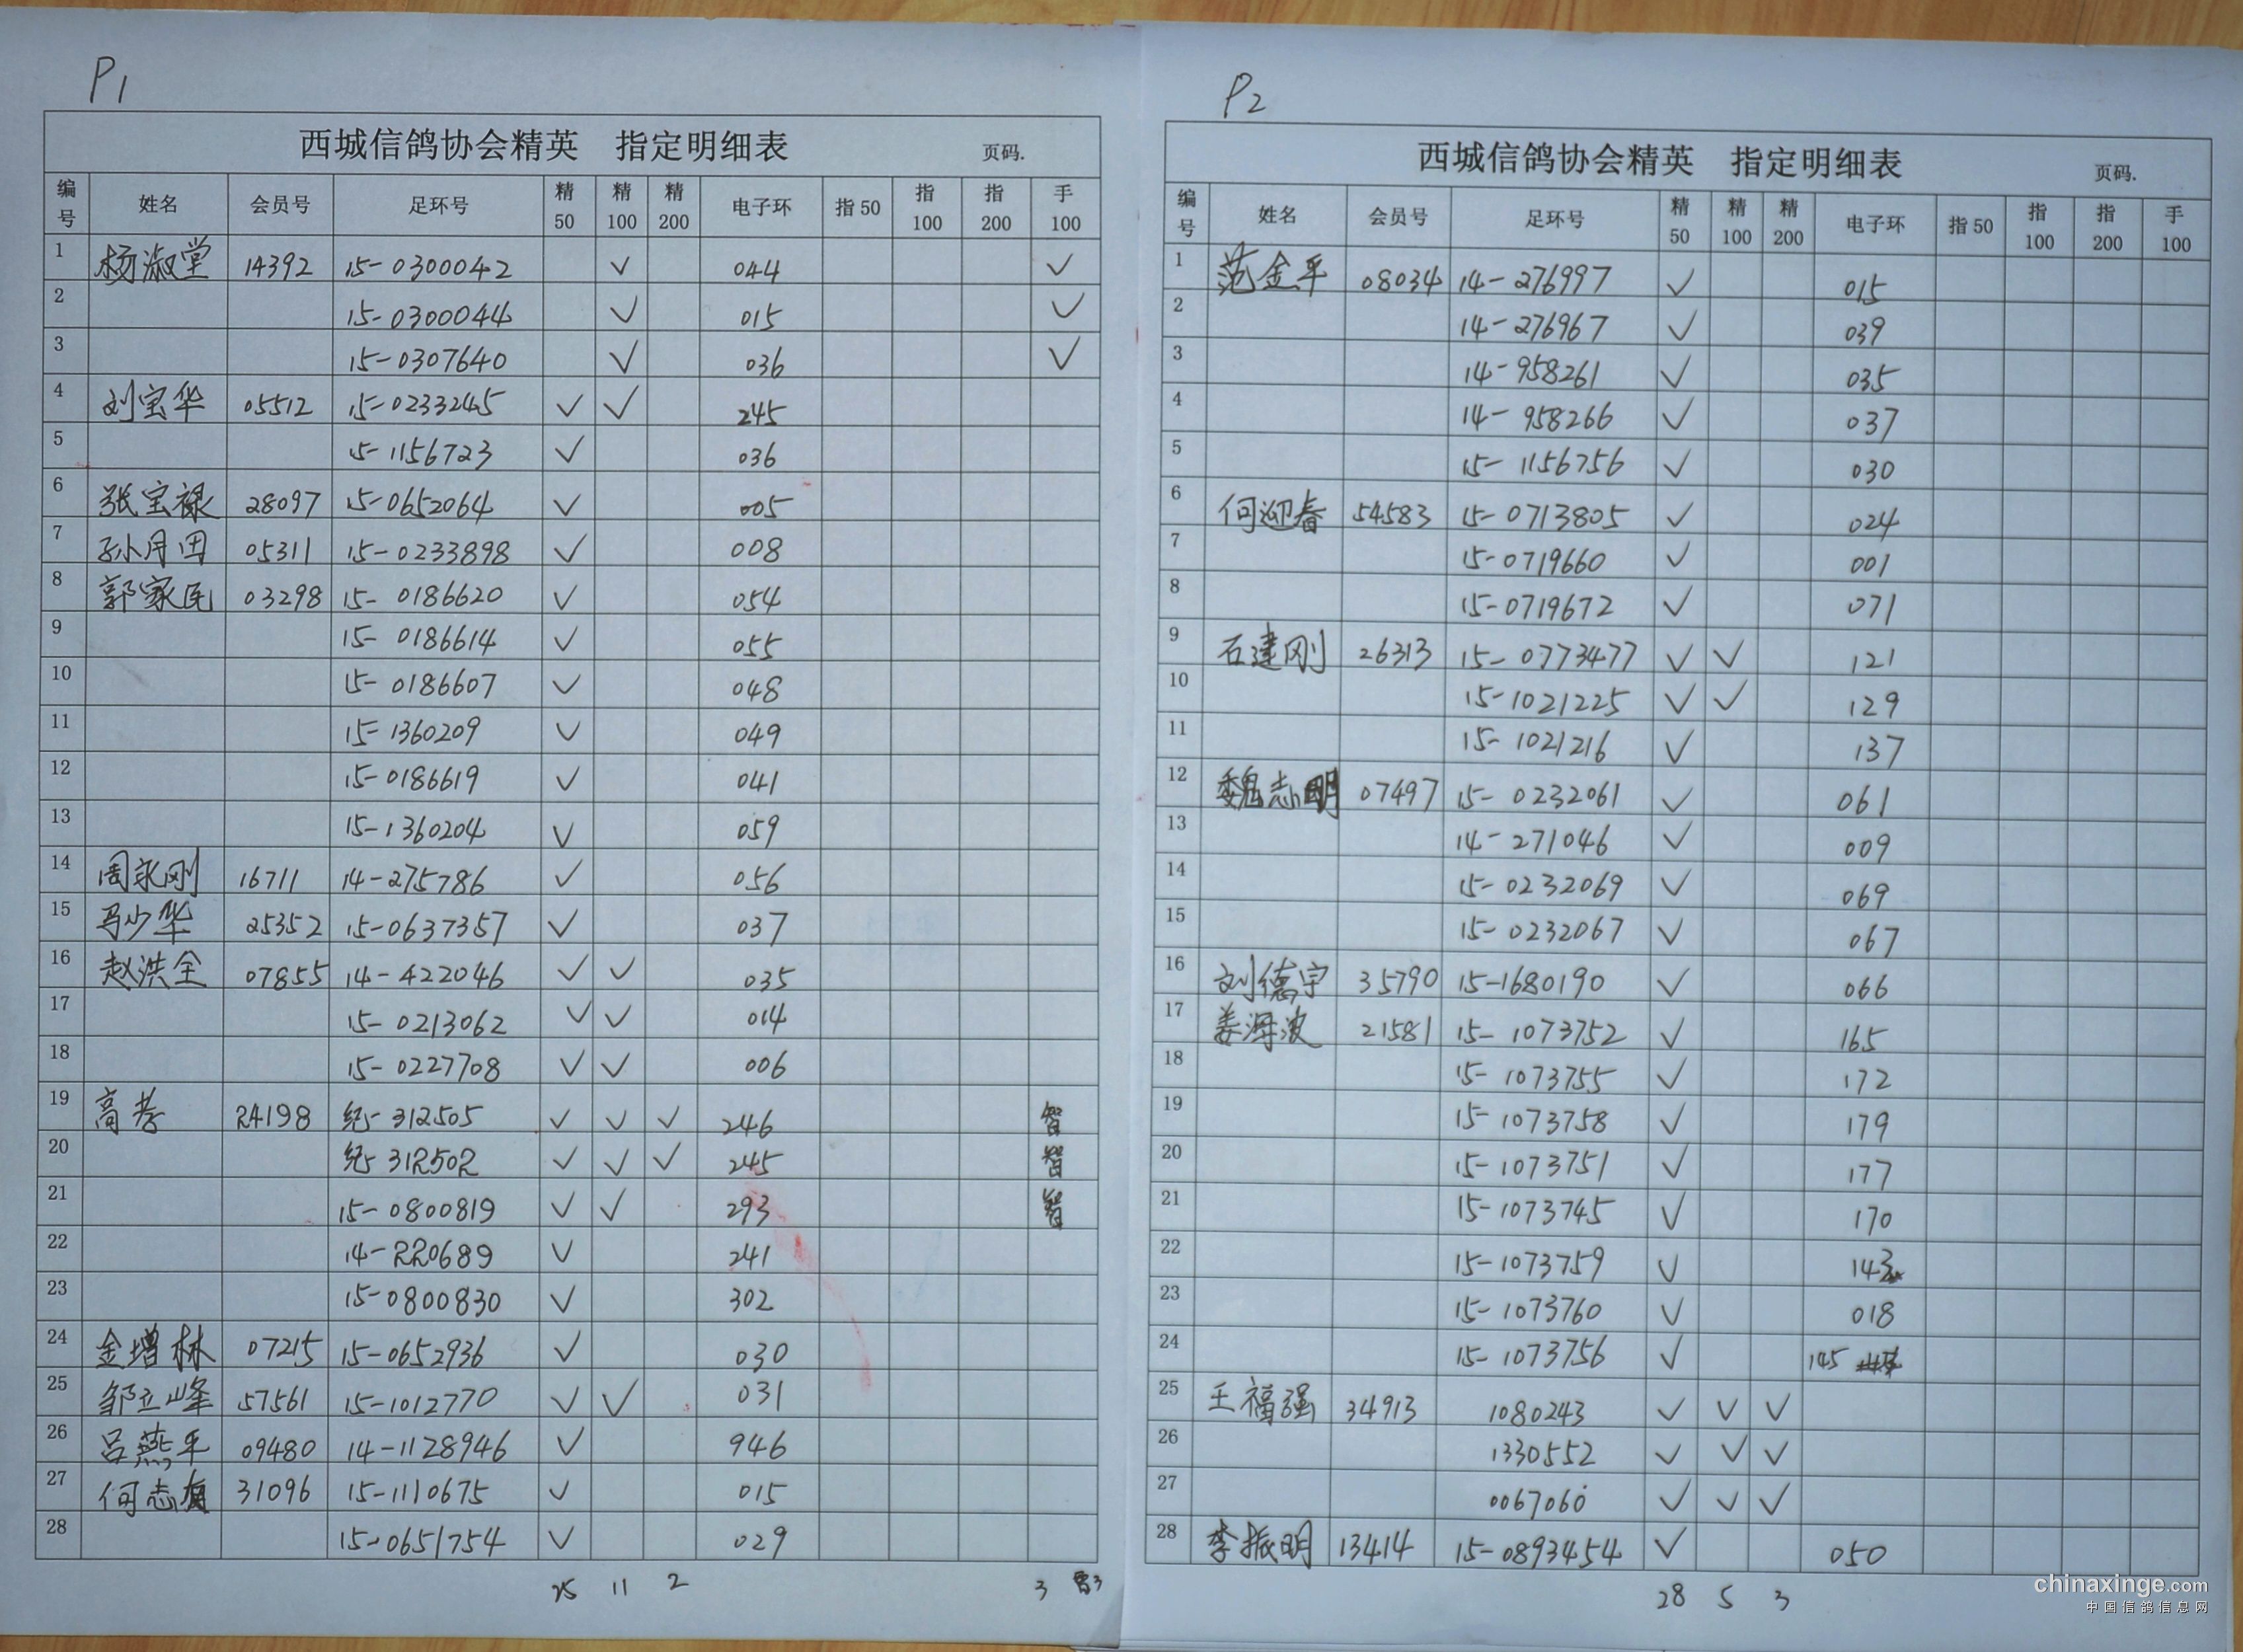 P1
西城信鸽协会精英 指定明细表 页码.
编号 姓名 会员号 足环号 精50 精100 精200 电子环 指50 指100 指200 手100
1 杨淑堂 14392 15-0300042 ✓ 044 ✓
2 15-0300044 ✓ 015 ✓
3 15-0307640 ✓ 036 ✓
4 刘宝华 05512 15-0233245 ✓ ✓ 245
5 15-1156723 ✓ 036
6 张宝禄 28097 15-0652064 ✓ 005
7 孙月田 05311 15-0233898 ✓ 008
8 郭家民 03298 15-0186620 ✓ 054
9 15-0186614 ✓ 055
10 15-0186607 ✓ 048
11 15-1360209 ✓ 049
12 15-0186619 ✓ 041
13 15-1360204 ✓ 059
14 周永刚 16711 14-275786 ✓ 056
15 马少华 25352 15-0637357 ✓ 037
16 赵洪全 07855 14-422046 ✓ ✓ 035
17 15-0213062 ✓ ✓ 014
18 15-0227708 ✓ ✓ 006
19 高孝 24198 纪-312505 ✓ ✓ ✓ 246 智
20 纪-312502 ✓ ✓ ✓ 245 智
21 15-0800819 ✓ ✓ 293 智
22 14-220689 ✓ 241
23 15-0800830 ✓ 302
24 金增林 07215 15-0652936 ✓ 030
25 邹立峰 57561 15-1012770 ✓ ✓ 031
26 吕燕平 09480 14-1128946 ✓ 946
27 何志 31096 15-1110675 ✓ 015
28 15-0651754 ✓ 029
25 11 2 3
P2
西城信鸽协会精英 指定明细表 页码.
编号 姓名 会员号 足环号 精50 精100 精200 电子环 指50 指100 指200 手100
1 范金平 08034 14-276997 ✓ 015
2 14-276967 ✓ 039
3 14-958261 ✓ 035
4 14-958266 ✓ 037
5 15-1156756 ✓ 030
6 何迎春 54583 15-0713805 ✓ 024
7 15-0719660 ✓ 001
8 15-0719672 ✓ 071
9 石建刚 26313 15-0773477 ✓ ✓ 121
10 15-1021225 ✓ ✓ 129
11 15-1021216 ✓ 137
12 魏志明 07497 15-0232061 ✓ 061
13 14-271046 ✓ 009
14 15-0232069 ✓ 069
15 15-0232067 ✓ 067
16 刘德宇 35790 15-1680190 ✓ 066
17 姜海波 21581 15-1073752 ✓ 165
18 15-1073755 ✓ 172
19 15-1073758 ✓ 179
20 15-1073751 ✓ 177
21 15-1073745 ✓ 170
22 15-1073759 ✓ 143
23 15-1073760 ✓ 018
24 15-1073756 ✓ 145
25 王福强 34913 1080243 ✓ ✓ ✓
26 1330552 ✓ ✓ ✓
27 0067060 ✓ ✓ ✓
28 李振明 13414 15-0893454 ✓ 050
28 5 3
chinaxinge.com
中国信鸽信息网